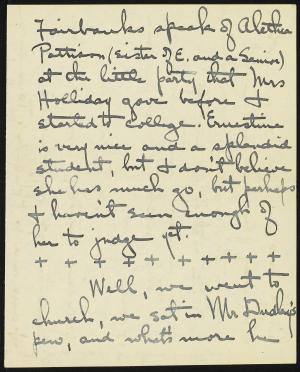 Fairbanks speak of Alethea
Pattison, (sister of E. and a Senior)
at the little party that Mrs
Holliday gave before I
started to college. Ernestine
is very nice and a splendid
student, but I don't believe
she has much go, but perhaps
I haven't seen enough of
her to judge yet.
+ + + + + + + + + +
Well, we went to
church, we sat in Mr. Dudley's
pew, and what's more he